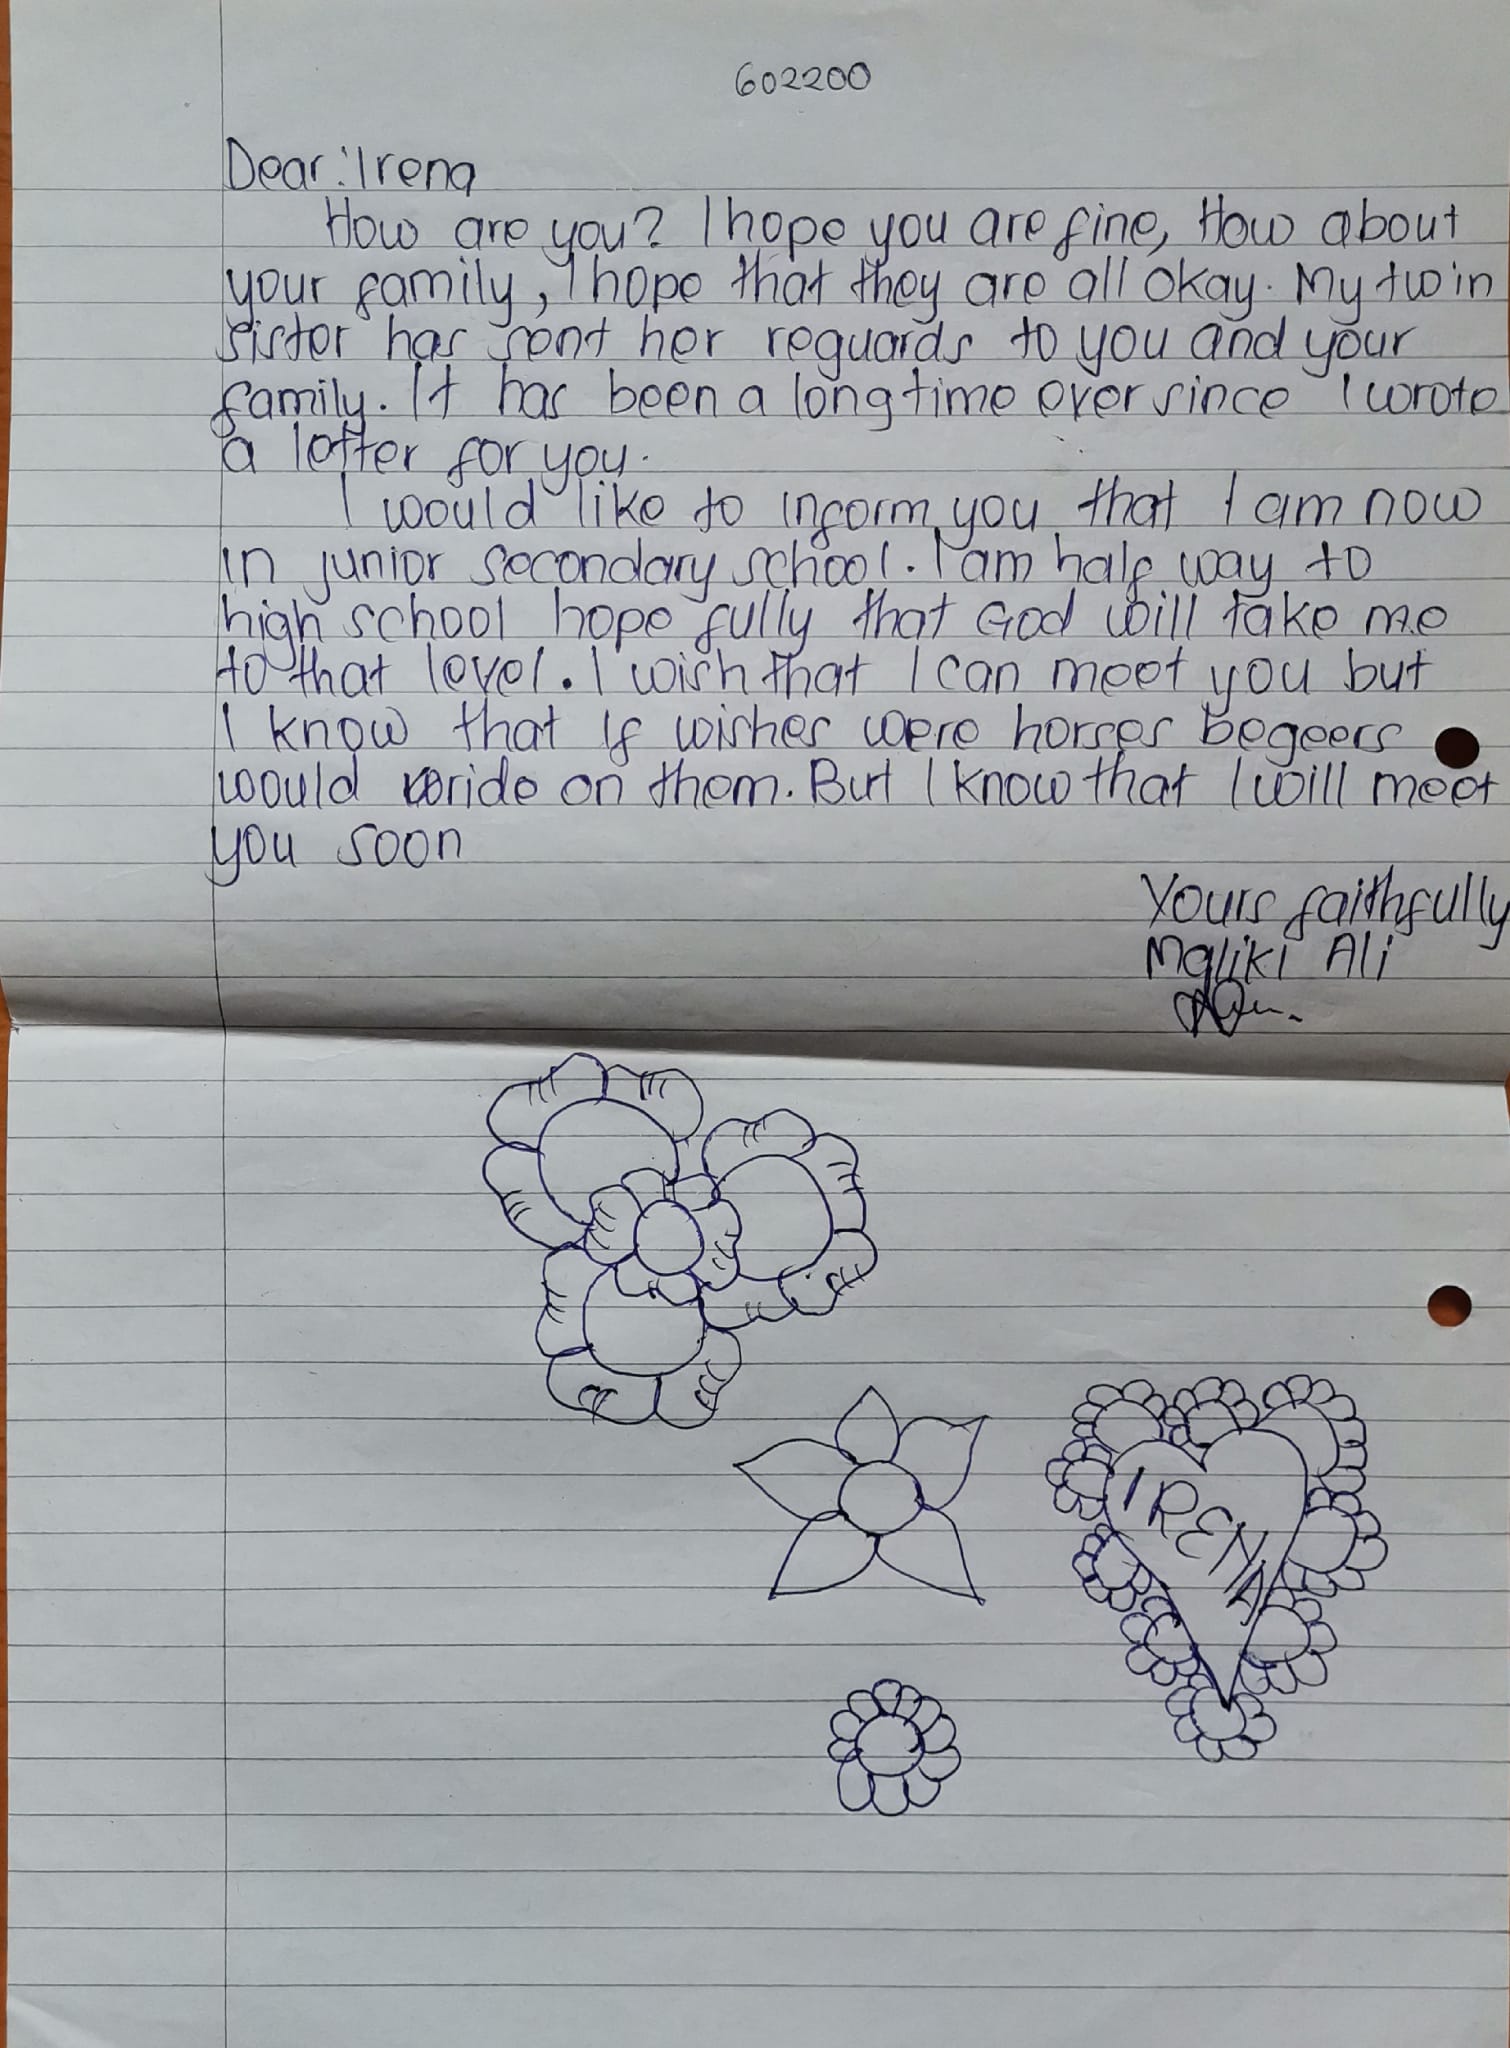 602200
Dear: Irena
How are you? I hope you are fine, How about
your family, I hope that they are all okay. My twin
sister has sent her reguards to you and your
family. It has been a long time ever since I wrote
a letter for you.
I would like to inform you that I am now
in junior secondary school. I am half way to
high school hope fully that God will take me
to that level. I wish that I can meet you but
I know that if wishes were horses begeers
would ride on them. But I know that I will meet
you soon
Yours faithfully
Maliki Ali
IRENA